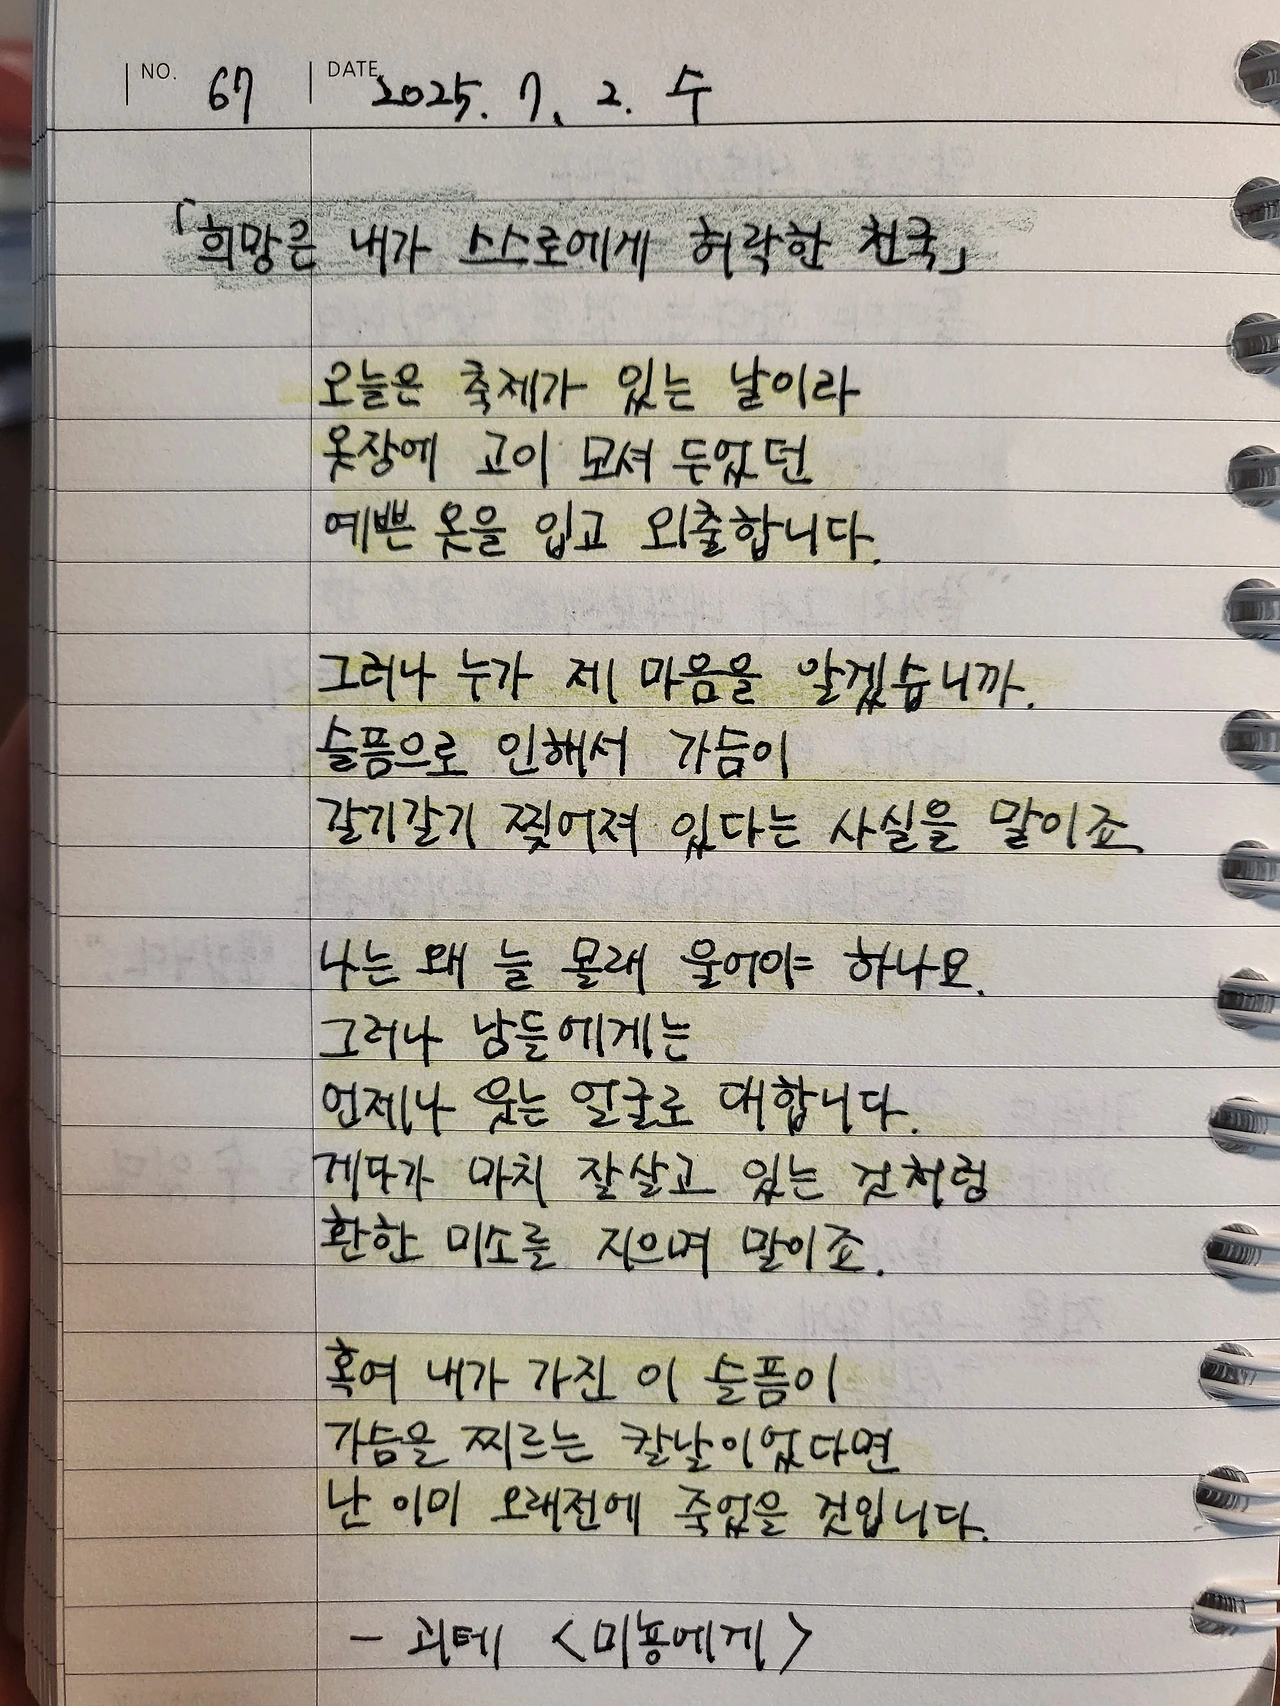 NO. 67 DATE 2025. 7. 2. 수
「희망은 내가 스스로에게 허락한 천국」
오늘은 축제가 있는 날이라
옷장에 고이 모셔 두었던
예쁜 옷을 입고 외출합니다.
그러나 누가 제 마음을 알겠습니까.
슬픔으로 인해서 가슴이
갈기갈기 찢어져 있다는 사실을 말이죠.
나는 왜 늘 몰래 울어야 하나요.
그러나 남들에게는
언제나 웃는 얼굴로 대합니다.
게다가 마치 잘살고 있는 것처럼
환한 미소를 지으며 말이죠.
혹여 내가 가진 이 슬픔이
가슴을 찌르는 칼날이었다면
난 이미 오래전에 죽었을 것입니다.
- 괴테 <미뇽에게>